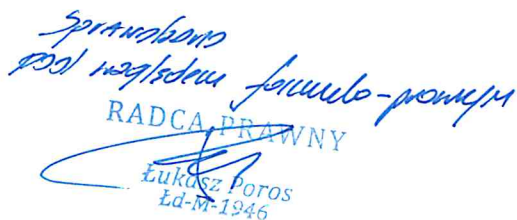 Sprawdzono
pod względem formalno-prawnym
RADCA PRAWNY
Łukasz Poros
Łd-M-1946